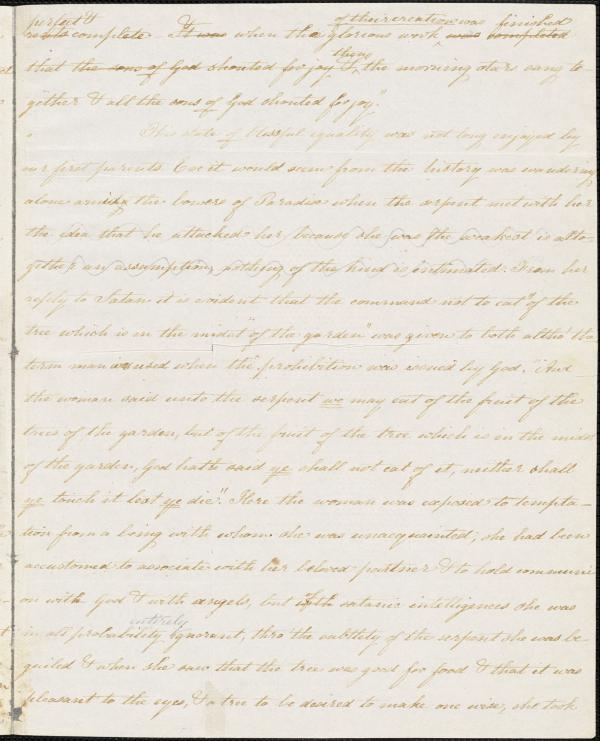 perfect &
complete. It was when the glorious work of their creation was finished was completed
that the sons of God shouted for joy &, then the morning stars sang to-
gether & all the sons of God shouted for joy."
This state of blissful equality was not long enjoyed by
our first parents. Eve it would seem from the history was wandering
alone amid the bowers of Paradise when the serpent met with her
the idea that he attacked her because she was the weakest is alto-
gether an assumption, nothing of the kind is intimated. From her
reply to Satan it is evident that the command not to eat "of the
tree which is in the midst of the garden" was given to both altho' the
term man is used when the prohibition was issued by God. "And
the woman said unto the serpent we may eat of the fruit of the
trees of the garden, but of the fruit of the tree which is in the midst
of the garden, God hath said ye shall not eat of it, neither shall
ye touch it lest ye die." Here the woman was exposed to tempta-
tion from a being with whom she was unacquainted; she had been
accustomed to associate with her beloved partner & to hold communi
on with God & with angels, but with satanic intelligences she was
in all probability entirely ignorant, thro' the subtilty of the serpent she was be-
guiled & when she saw that the tree was good for food & that it was
pleasant to the eyes, & a tree to be desired to make one wise, she took